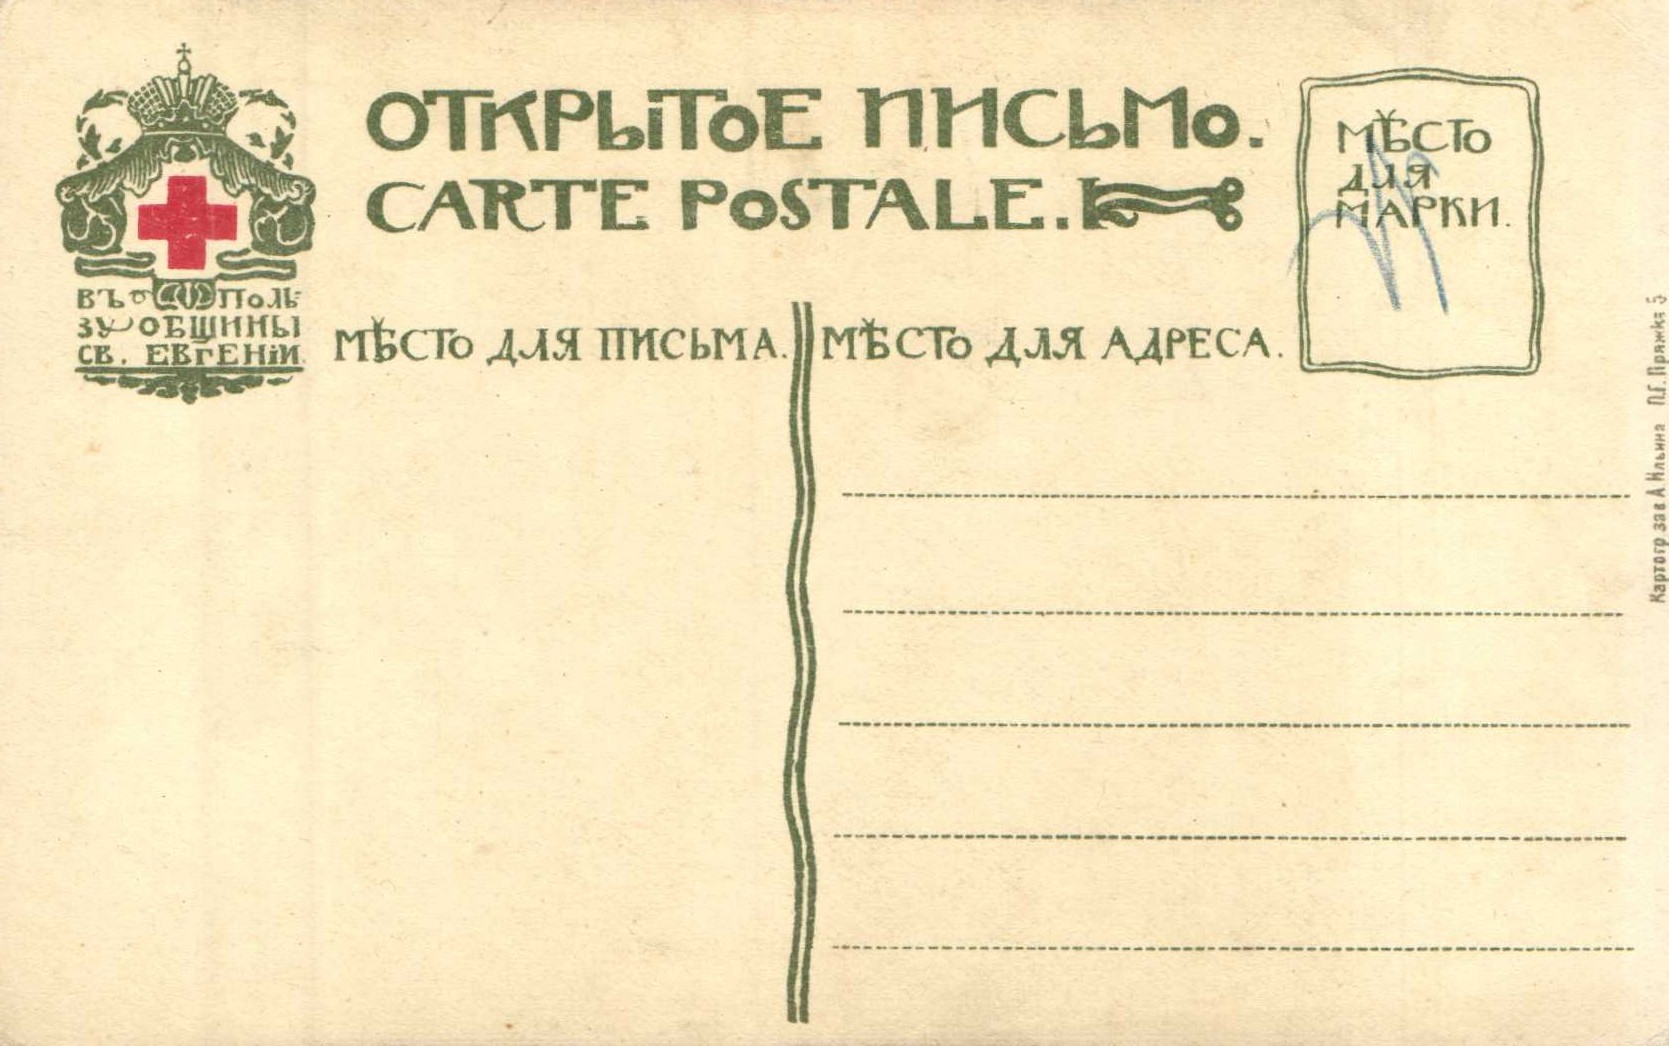 ОТКРЫТОЕ ПИСЬМО.
CARTE POSTALE.
ВЪ ПОЛЬ-
ЗУ ОБЩИНЫ
СВ. ЕВГЕНІИ.
МѢСТО ДЛЯ ПИСЬМА.
МѢСТО ДЛЯ АДРЕСА.
МѢСТО
ДЛЯ
МАРКИ.
Картогр зав А Ильина П.Г. Пряжка 5